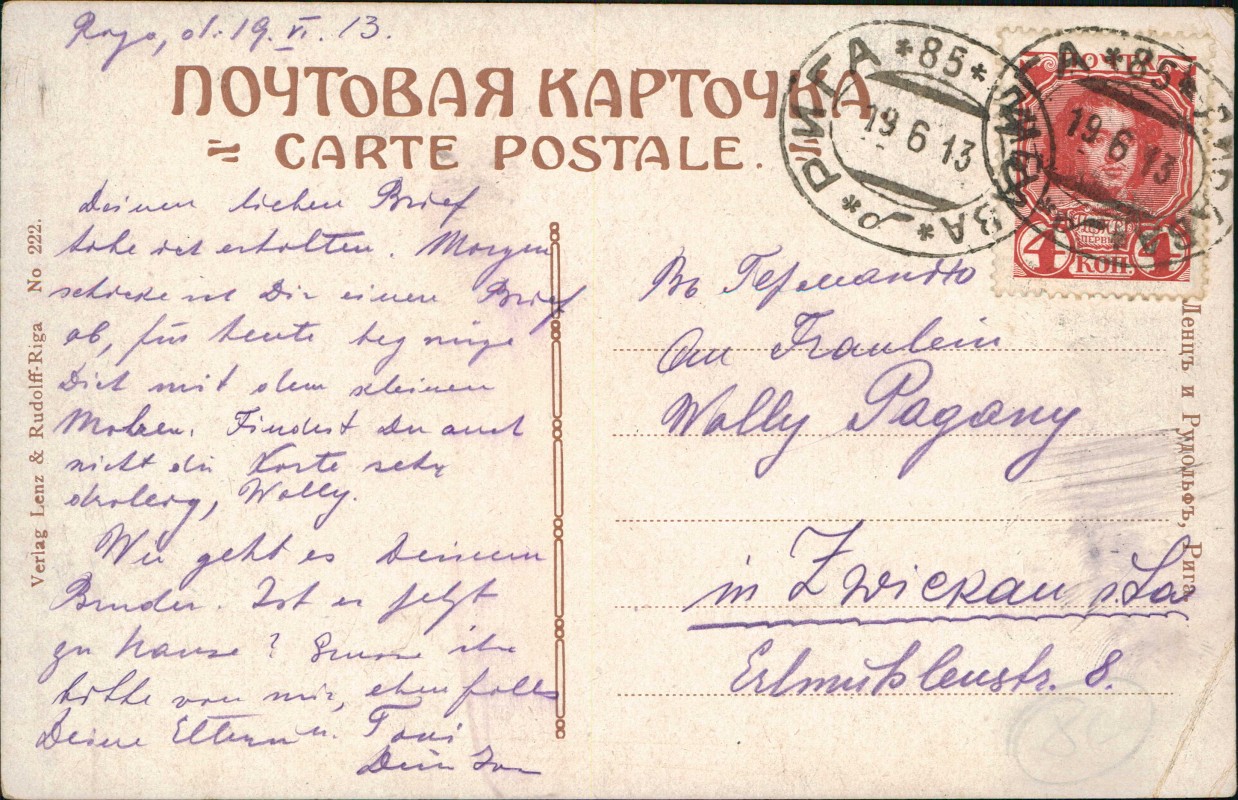 d. 19. VI. 13.
ПОЧТОВАЯ КАРТОЧКА
CARTE POSTALE.
Deinen lieben Brief
habe ich erhalten. Morgen
schicke ich Dir einen Brief
ab, für heute begnüge
Dich mit dem kleinen
Findest Du auch
nicht die Karte sehr
drollig, Wally.
Wie geht es Deinem
Bruder. Ist er jetzt
zu Hause? Grüsse ihn
bitte von mir, ebenfalls
Deine Eltern u. Toni
Dein
Verlag Lenz & Rudolff-Riga No 222.
*РИГА *85*
19 6 13
*РИГА *85*
19 6 13
4 КОП. 4
Въ Германію
An Fräulein
Wally Pagany
in Zwickau i. Sa
Erlmühlenstr. 8.
Ленцъ и Рудольфъ, Рига